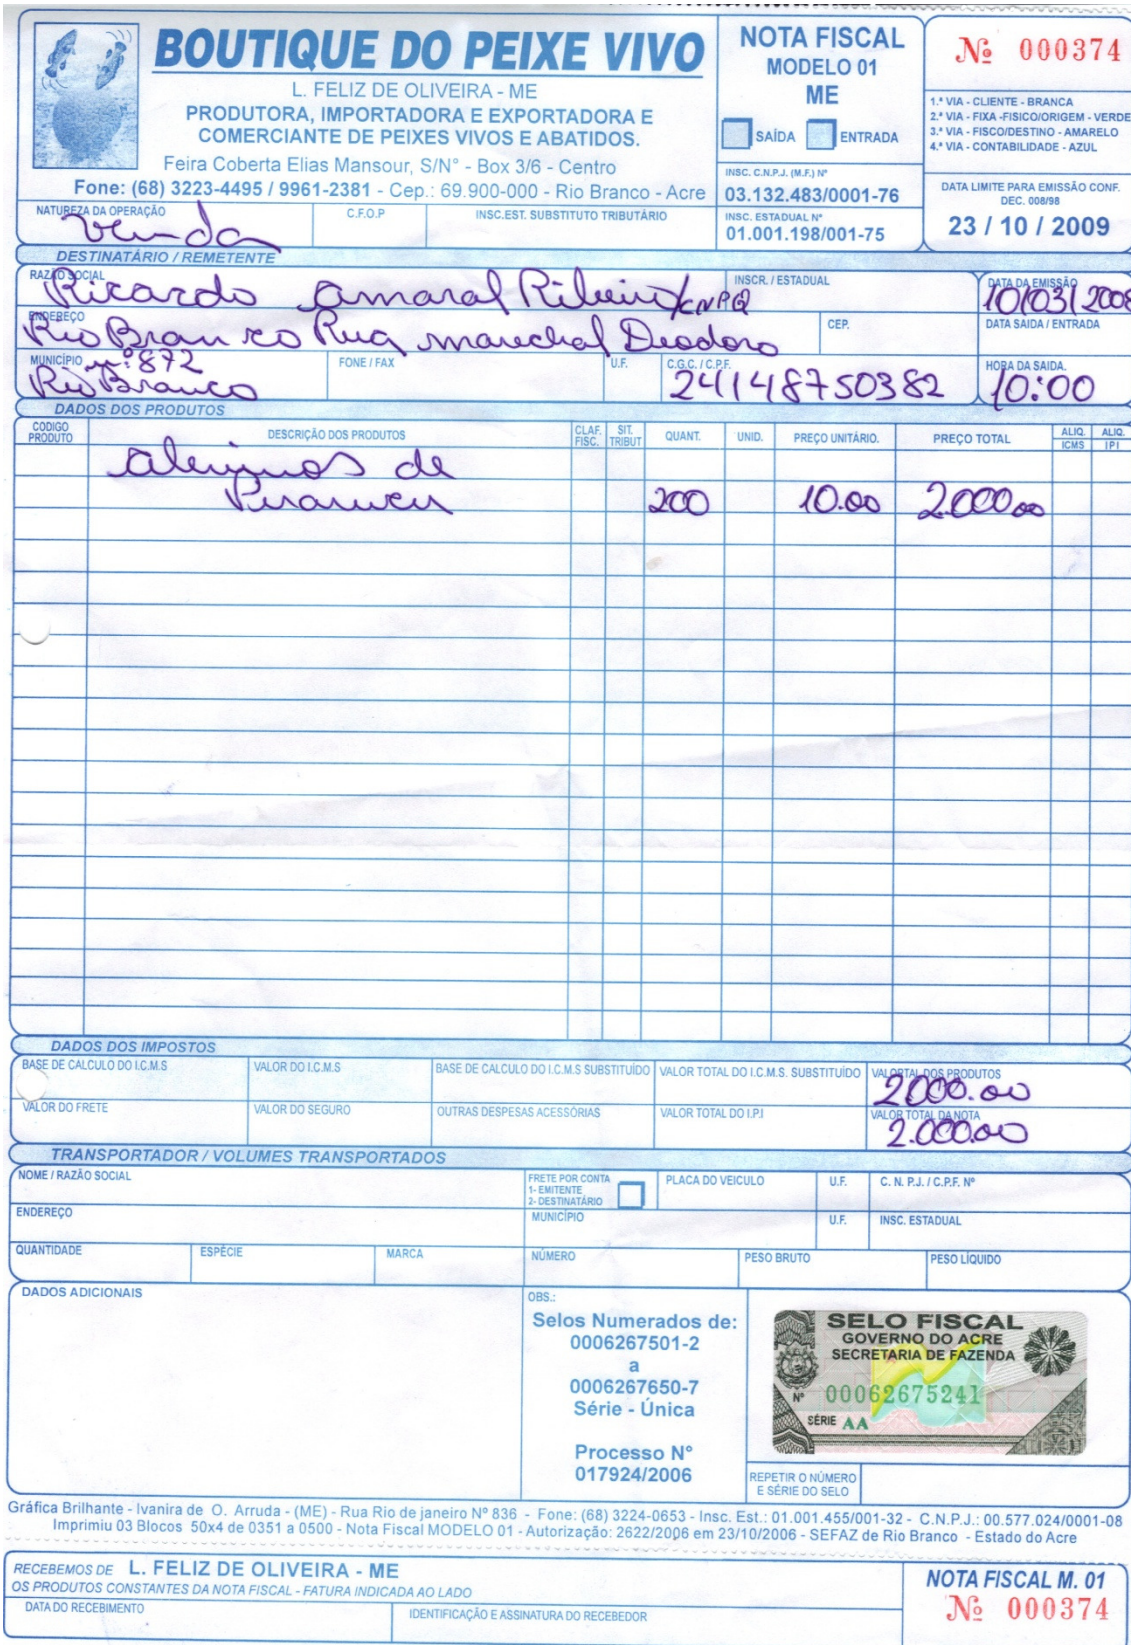 BOUTIQUE DO PEIXE VIVO
L. FELIZ DE OLIVEIRA - ME
PRODUTORA, IMPORTADORA E EXPORTADORA E
COMERCIANTE DE PEIXES VIVOS E ABATIDOS.
Feira Coberta Elias Mansour, S/N° - Box 3/6 - Centro
Fone: (68) 3223-4495 / 9961-2381 - Cep.: 69.900-000 - Rio Branco - Acre
NOTA FISCAL
MODELO 01
ME
SAÍDA ENTRADA
INSC. C.N.P.J. (M.F.) Nº
03.132.483/0001-76
INSC. ESTADUAL Nº
01.001.198/001-75
Nº 000374
1.ª VIA - CLIENTE - BRANCA
2.ª VIA - FIXA -FISICO/ORIGEM - VERDE
3.ª VIA - FISCO/DESTINO - AMARELO
4.ª VIA - CONTABILIDADE - AZUL
DATA LIMITE PARA EMISSÃO CONF.
DEC. 008/98
23 / 10 / 2009
NATUREZA DA OPERAÇÃO C.F.O.P INSC.EST. SUBSTITUTO TRIBUTÁRIO
Venda
DESTINATÁRIO / REMETENTE
RAZÃO SOCIAL INSCR. / ESTADUAL DATA DA EMISSÃO
Ricardo Amaral Ribeiro/CNPQ 10/03/2008
ENDEREÇO CEP. DATA SAIDA / ENTRADA
Rio Branco Rua marechal Deodoro
nº 872
MUNICÍPIO FONE / FAX U.F. C.G.C. / C.P.F. HORA DA SAIDA.
Rio Branco 24148750382 10:00
DADOS DOS PRODUTOS
CODIGO PRODUTO DESCRIÇÃO DOS PRODUTOS CLAF. FISC. SIT. TRIBUT QUANT. UNID. PREÇO UNITÁRIO. PREÇO TOTAL ALIQ. ICMS ALIQ. IPI
alevinos de
Pirarucu 200 10.00 2.000,00
DADOS DOS IMPOSTOS
BASE DE CALCULO DO I.C.M.S VALOR DO I.C.M.S BASE DE CALCULO DO I.C.M.S SUBSTITUÍDO VALOR TOTAL DO I.C.M.S. SUBSTITUÍDO VALORTAL DOS PRODUTOS
2000.00
VALOR DO FRETE VALOR DO SEGURO OUTRAS DESPESAS ACESSÓRIAS VALOR TOTAL DO I.P.I VALOR TOTAL DA NOTA
2.000.00
TRANSPORTADOR / VOLUMES TRANSPORTADOS
NOME / RAZÃO SOCIAL FRETE POR CONTA PLACA DO VEICULO U.F. C. N. P.J. / C.P.F. Nº
1- EMITENTE
2- DESTINATÁRIO
ENDEREÇO MUNICÍPIO U.F. INSC. ESTADUAL
QUANTIDADE ESPÉCIE MARCA NÚMERO PESO BRUTO PESO LÍQUIDO
DADOS ADICIONAIS
OBS.:
Selos Numerados de:
0006267501-2
a
0006267650-7
Série - Única
Processo N°
017924/2006
SELO FISCAL
GOVERNO DO ACRE
SECRETARIA DE FAZENDA
Nº 00062675241
SÉRIE AA
REPETIR O NÚMERO
E SÉRIE DO SELO
Gráfica Brilhante - Ivanira de O. Arruda - (ME) - Rua Rio de janeiro Nº 836 - Fone: (68) 3224-0653 - Insc. Est.: 01.001.455/001-32 - C.N.P.J.: 00.577.024/0001-08
Imprimiu 03 Blocos 50x4 de 0351 a 0500 - Nota Fiscal MODELO 01 - Autorização: 2622/2006 em 23/10/2006 - SEFAZ de Rio Branco - Estado do Acre
RECEBEMOS DE L. FELIZ DE OLIVEIRA - ME
OS PRODUTOS CONSTANTES DA NOTA FISCAL - FATURA INDICADA AO LADO
DATA DO RECEBIMENTO IDENTIFICAÇÃO E ASSINATURA DO RECEBEDOR
NOTA FISCAL M. 01
Nº 000374